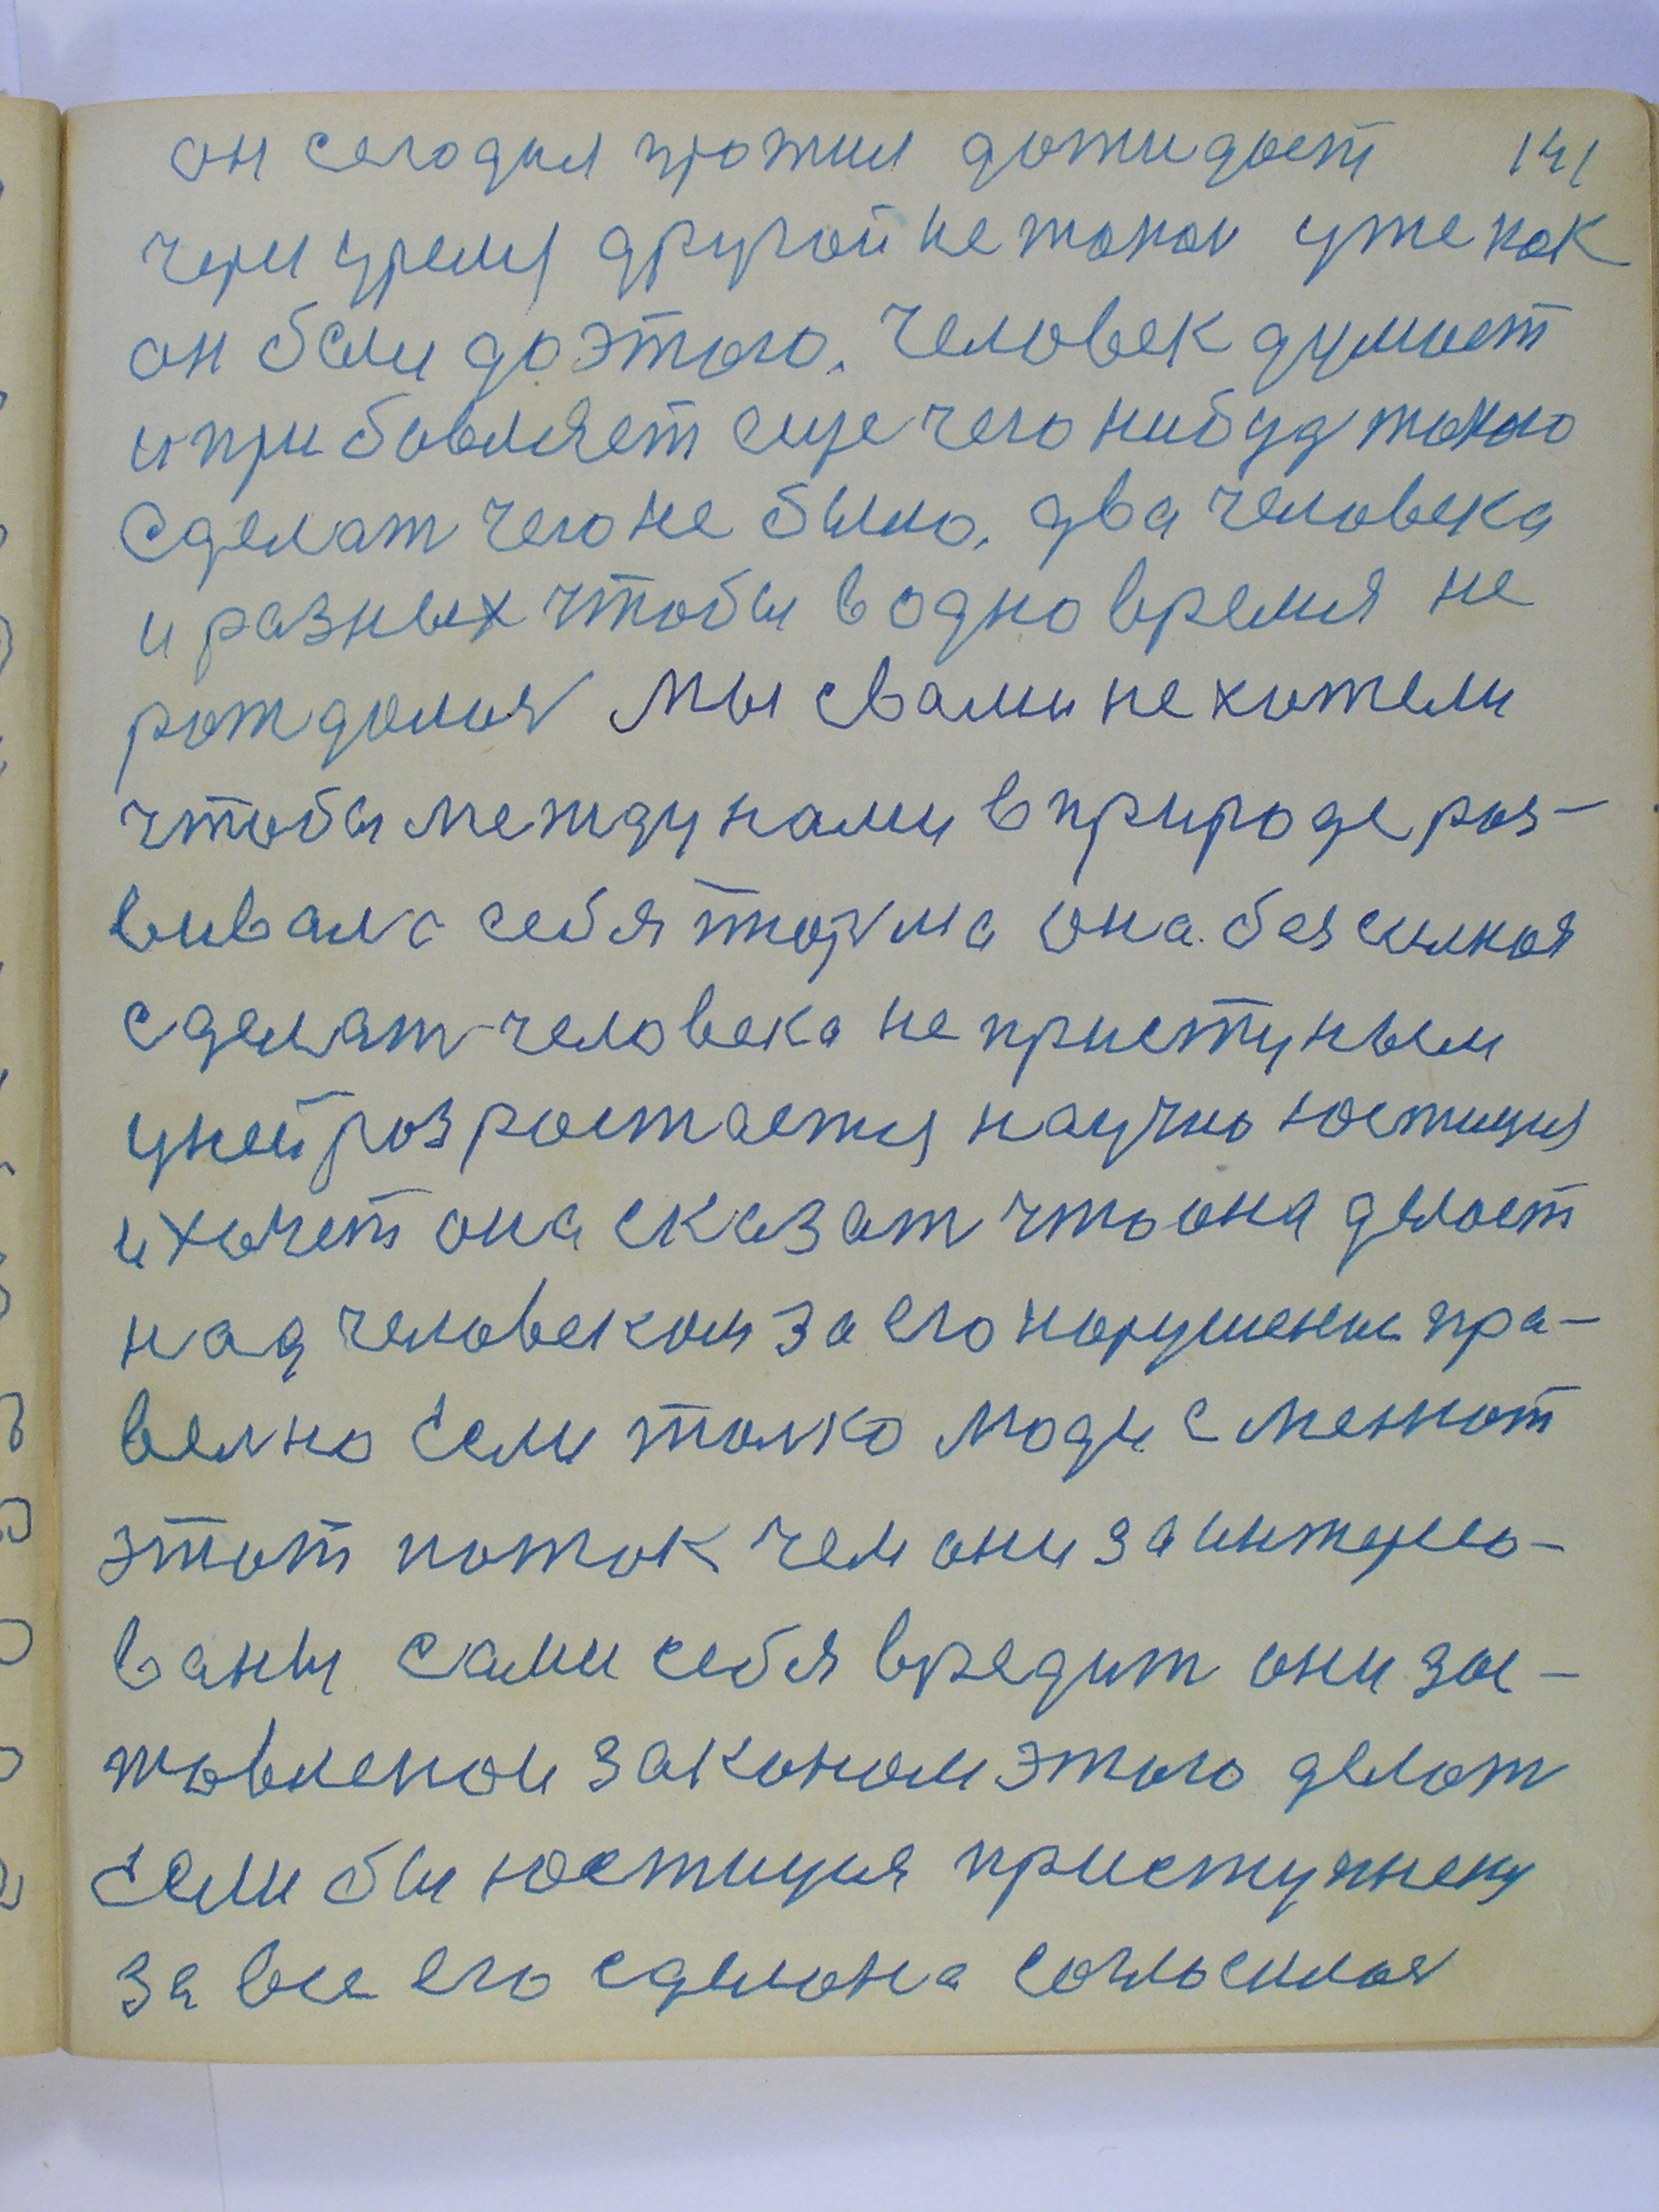 он сегодня прожил дожидает 141
другой не такой уже как
он были до этого. человек думает
и прибовляет еще чего нибуд такого
сделат чего не было, два человека
и разных чтобы в одно время не
рождалися мы свами не хотели
чтобы между нами в природе роз-
вивала себя тюрма она безсилная
сделат человека не приступным
у ней розростается научно юстиция
и хочет она сказат что она делает
над человеком за его нарушения пра-
велно если толко люди сменют
этот поток чем они заинтересо-
ваны сами себя вредит они зас-
товленои законом этого делат
если бы юстиция приступнеку
за все его сделона согласилася